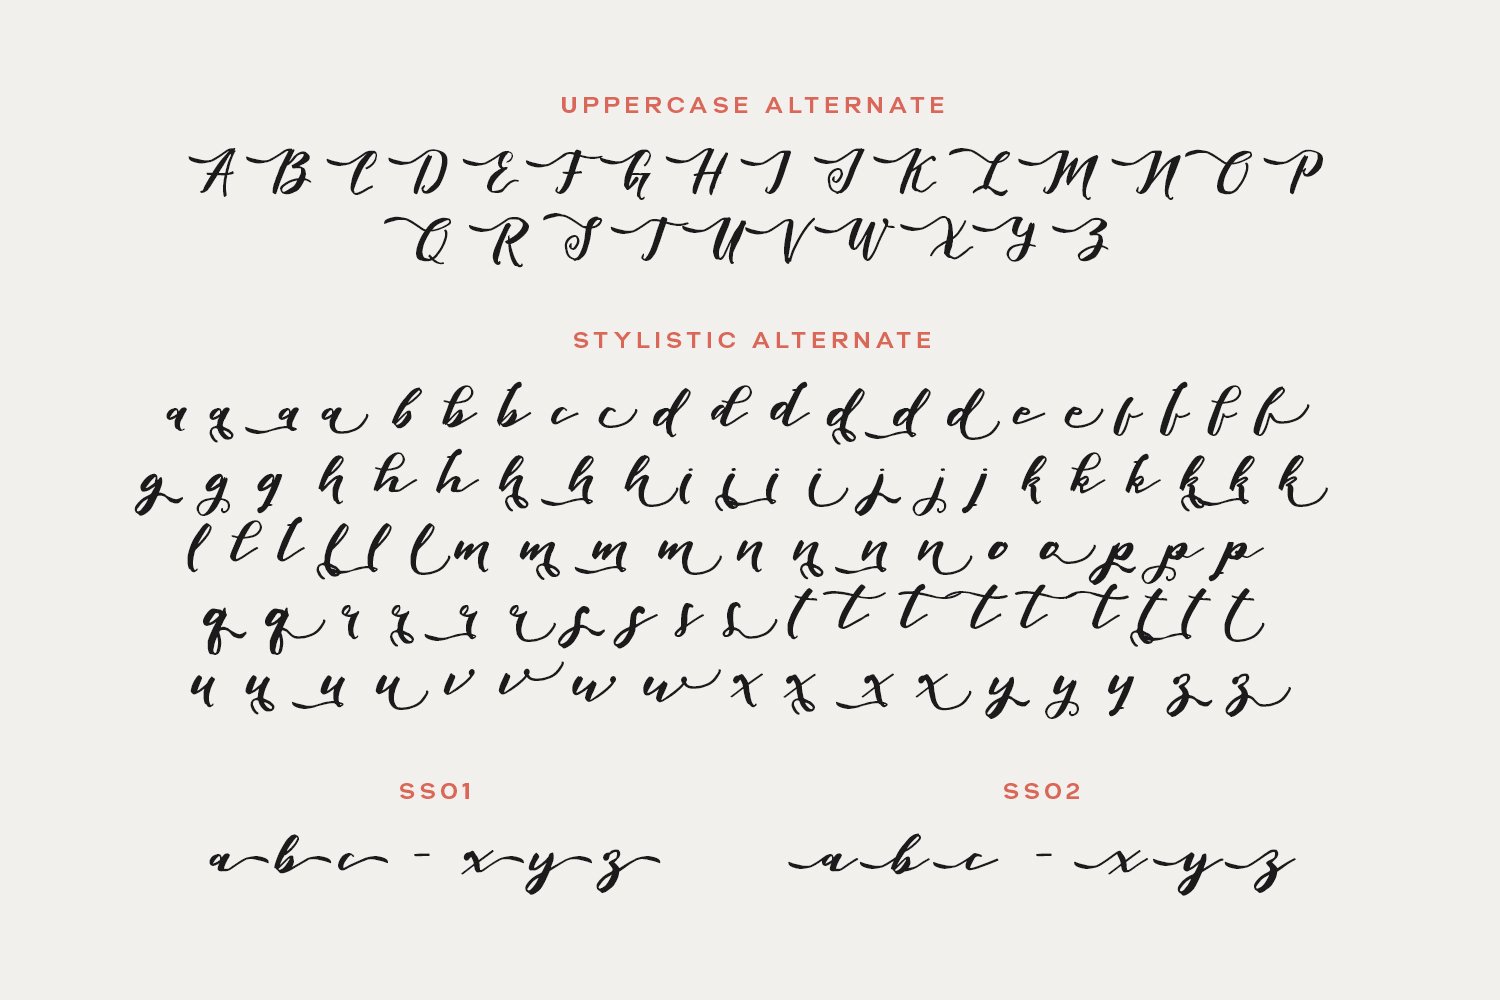 UPPERCASE ALTERNATE
A B C D E F G H I J K L M N O P
Q R S T U V W X Y Z
STYLISTIC ALTERNATE
a a a a b b b c c d d d d d d e e f f f f
g g g h h h h h h i i i i j j j k k k k k k
l l l l l l m m m m n n n n o o p p p
q q r r r r s s s s t t t t t t t t t
u u u u v v w w x x x x y y y z z
SS01 SS02
a b c - x y z a b c - x y z